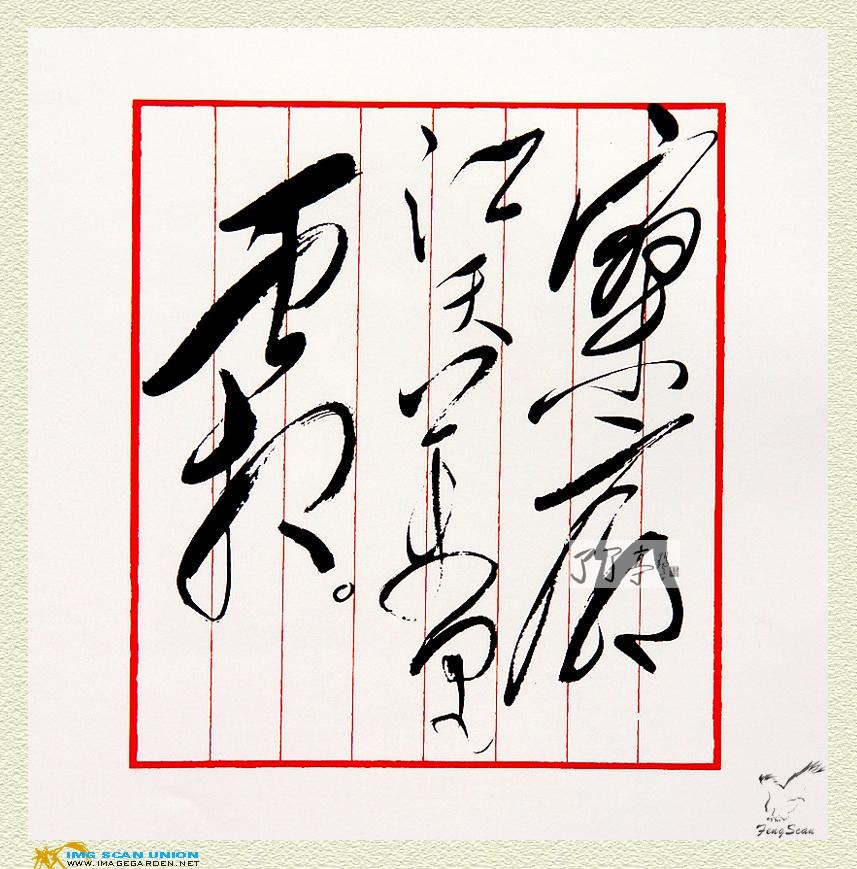 寥廓
江天萬里
霜。
FengScan
IMG SCAN UNION
WWW.IMAGEGARDEN.NET